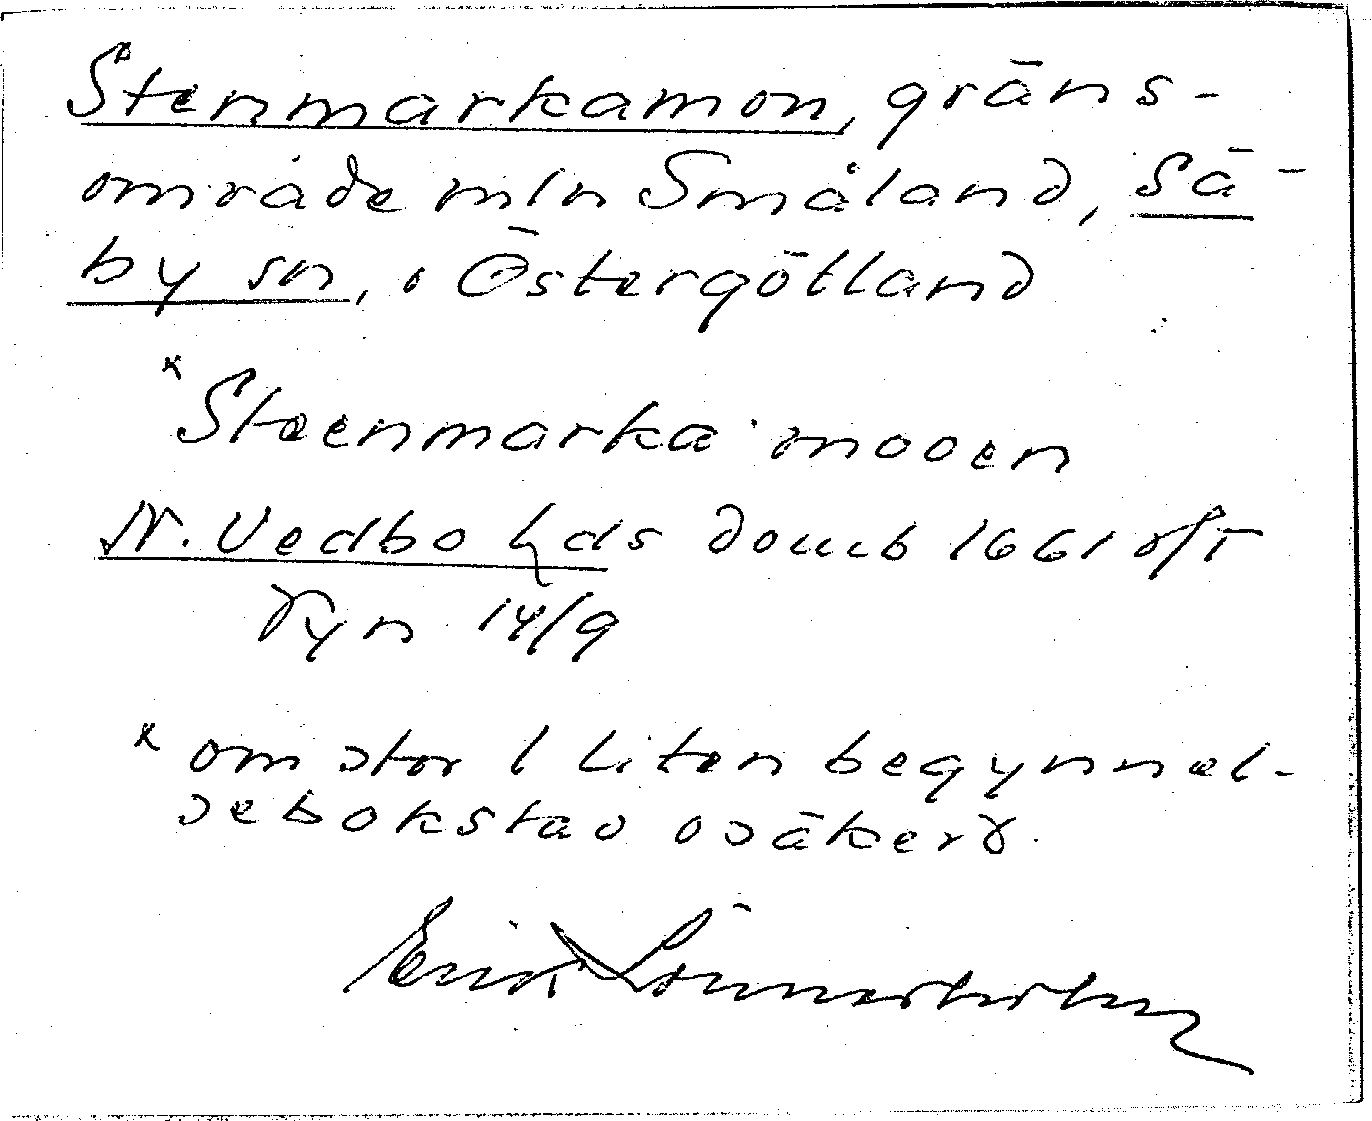 Stenmarkamon, gräns-
område mln Småland, Sä-
by sn, o Östergötland
x Steenmarka mooen
N. Vedbo hds domb 1661 vt
syn 14/9
x om stor l liten begynnel-
sebokstav osäkert.
Erik Linnerholm